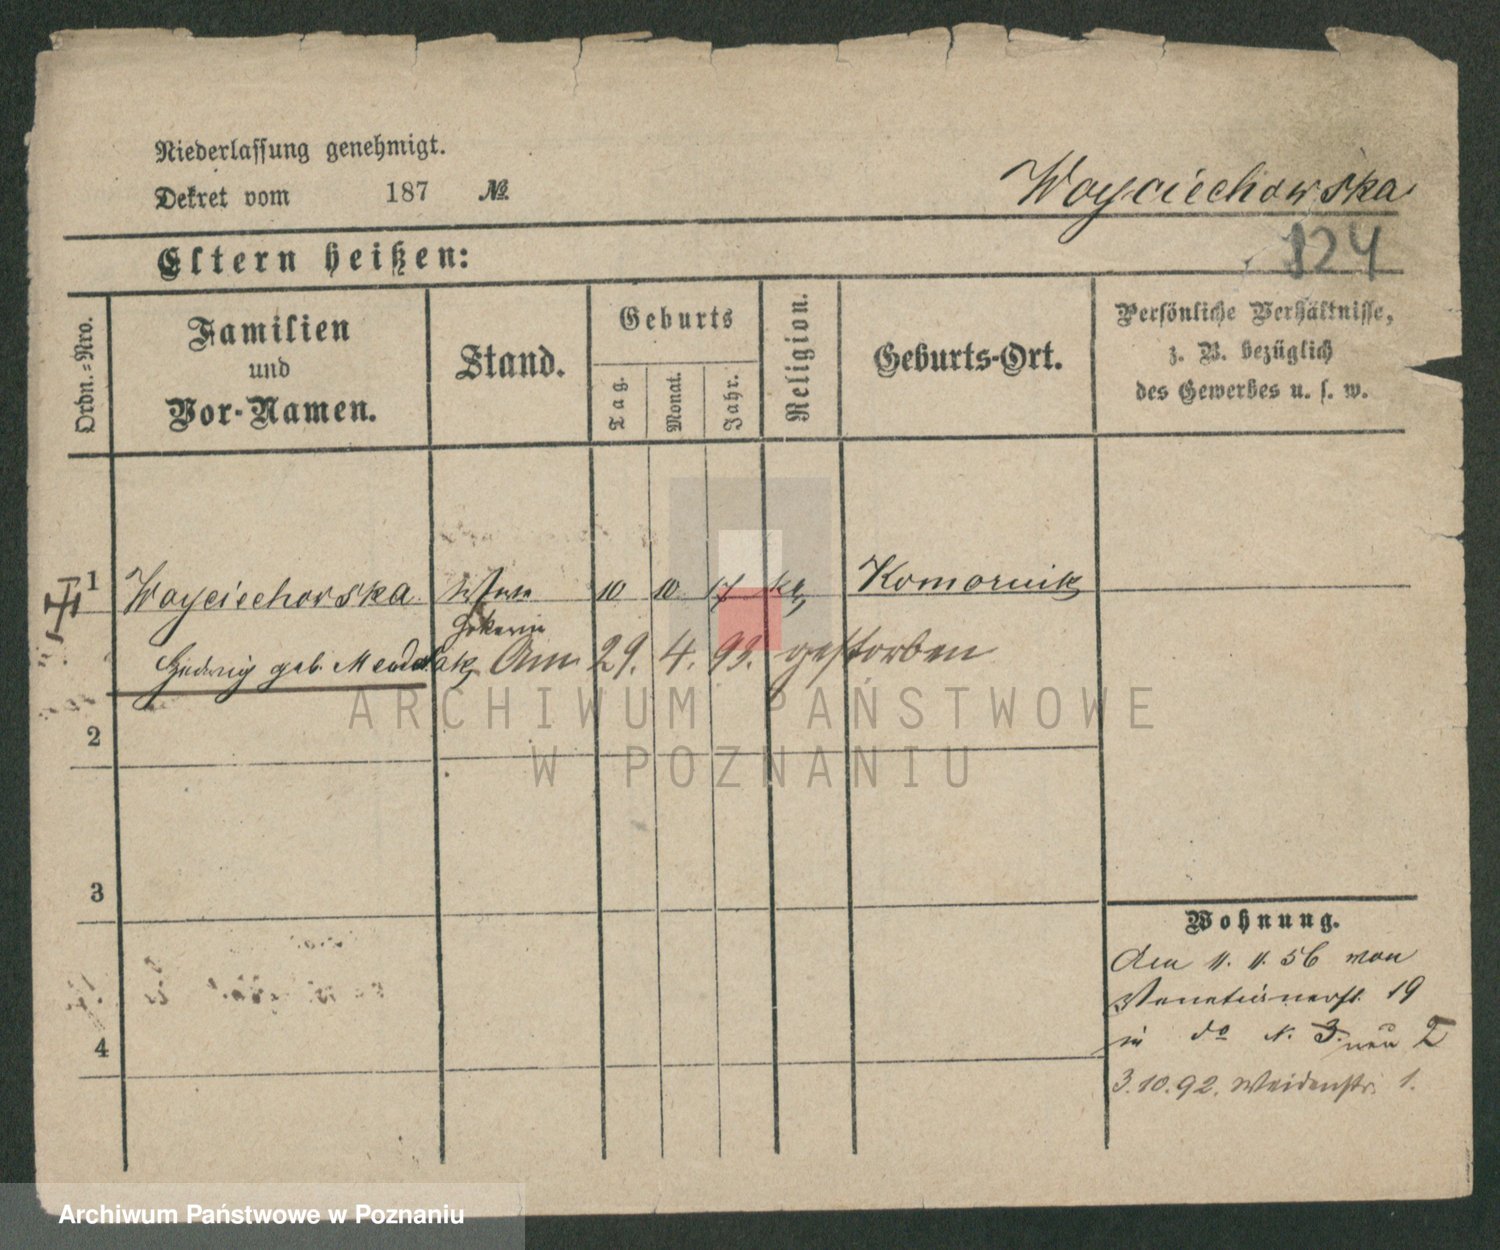 Niederlassung genehmigt.
Dekret vom 187 №
Woyciechowska
124
Eltern heißen:
Ordn.-Nro.
Familien
und
Vor-Namen.
Stand.
Geburts
Tag.
Monat.
Jahr.
Religion.
Geburts-Ort.
Persönliche Verhältnisse,
z. B. bezüglich
des Gewerbes u. s. w.
1 Woyciechowska Wwe 10 10 17 kt Komornik
Hökerin
Hedwig geb. Am 29. 4. 93. gestorben
2
3
4
Wohnung.
den 11. 11. 56 von
Venetianerst. 19
in do N. 3. neu 2
3.10.92. Weidenstr. 1.
ARCHIWUM PAŃSTWOWE
W POZNANIU
Archiwum Państwowe w Poznaniu